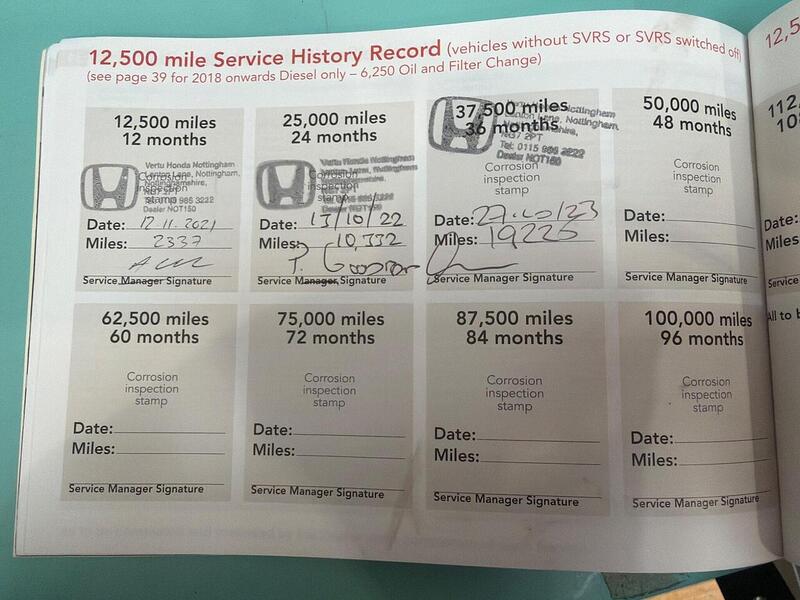 12,500 mile Service History Record (vehicles without SVRS or SVRS switched off)
(see page 39 for 2018 onwards Diesel only – 6,250 Oil and Filter Change)
12,500 miles
12 months
Vertu Honda Nottingham
Lenton Lane, Nottingham
Nottinghamshire,
NG7 2PT
Tel: 0115 986 3222
Dealer NOT150
Corrosion
inspection
stamp
Date: 12.11.2021
Miles: 2337
Service Manager Signature
25,000 miles
24 months
Vertu Honda Nottingham
Lenton Lane, Nottingham
Dealer NOT150
Corrosion
inspection
stamp
Date: 13/10/22
Miles: 10,332
Service Manager Signature
37,500 miles
36 months
Nottingham
Lenton Lane, Nottingham,
NG7 2PT
Tel: 0115 986 2222
Dealer NOT150
Corrosion
inspection
stamp
Date: 27.10/23
Miles: 19226
Service Manager Signature
50,000 miles
48 months
Corrosion
inspection
stamp
Date:
Miles:
Service Manager Signature
62,500 miles
60 months
Corrosion
inspection
stamp
Date:
Miles:
Service Manager Signature
75,000 miles
72 months
Corrosion
inspection
stamp
Date:
Miles:
Service Manager Signature
87,500 miles
84 months
Corrosion
inspection
stamp
Date:
Miles:
Service Manager Signature
100,000 miles
96 months
Corrosion
inspection
stamp
Date:
Miles:
Service Manager Signature
12,5
112,
10
Date:
Miles
Service
All to b